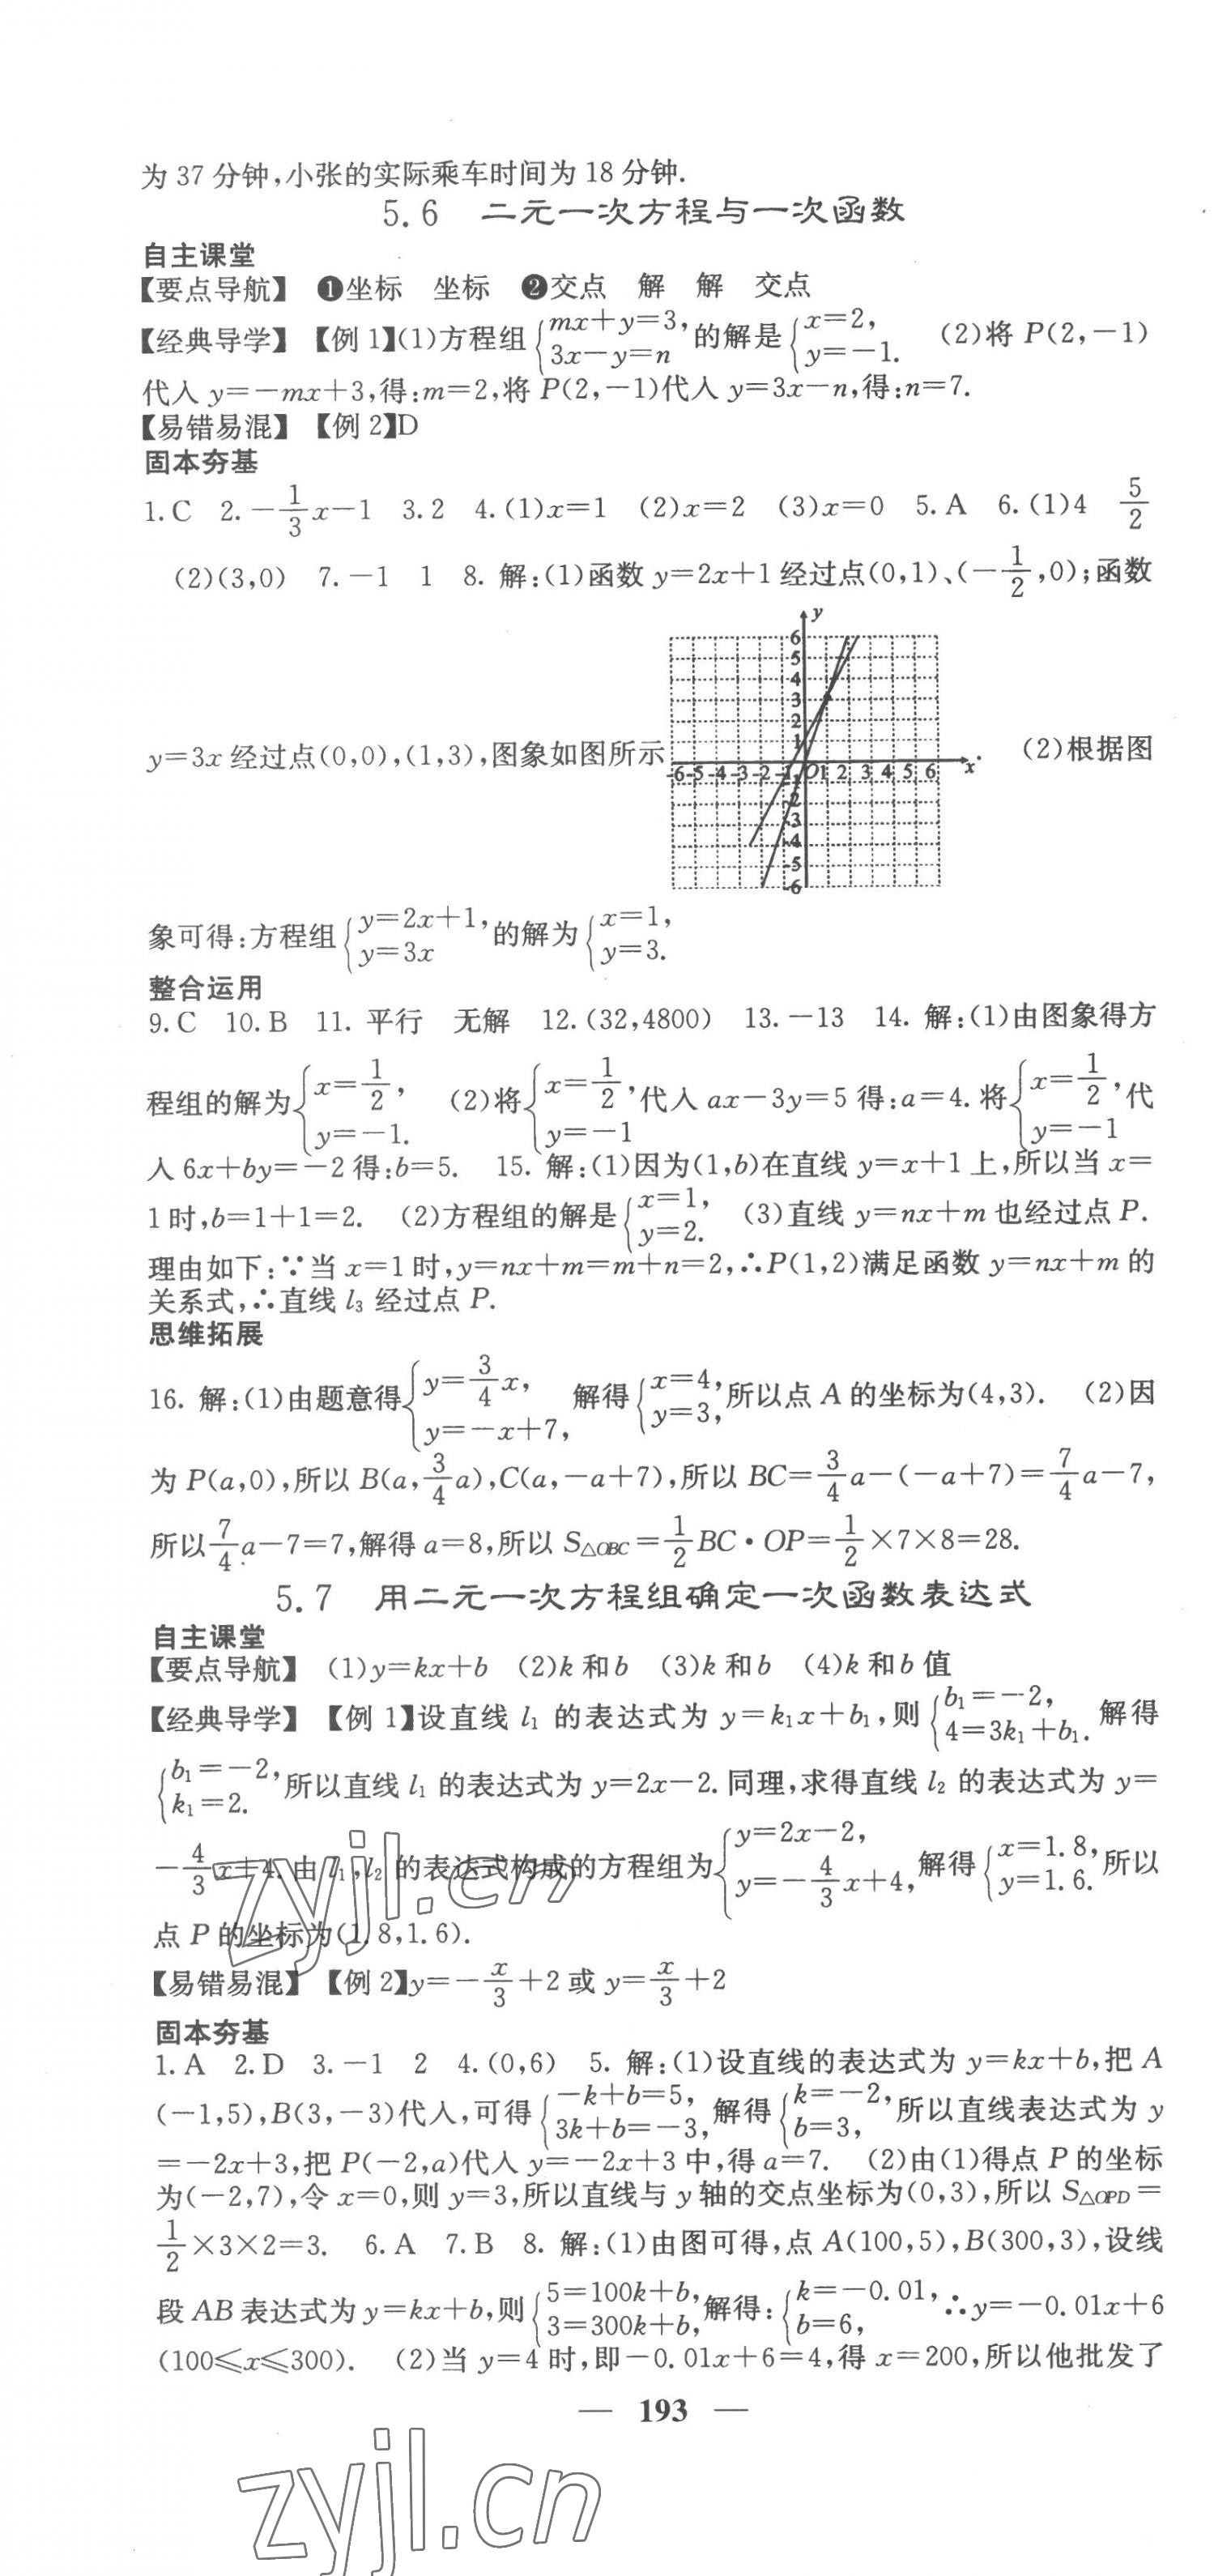 为 37 分钟,小张的实际乘车时间为 18 分钟.
5.6 二元一次方程与一次函数
自主课堂
【要点导航】 ❶坐标 坐标 ❷交点 解 解 交点
【经典导学】【例 1】(1)方程组{mx+y=3, 3x-y=n 的解是{x=2, y=-1. (2)将 P(2,-1)
代入 y=-mx+3,得:m=2,将 P(2,-1)代入 y=3x-n,得:n=7.
【易错易混】【例 2】D
固本夯基
1.C 2.-1/3x-1 3.2 4.(1)x=1 (2)x=2 (3)x=0 5.A 6.(1)4 5/2
(2)(3,0) 7.-1 1 8. 解:(1)函数 y=2x+1 经过点(0,1)、(-1/2,0);函数
y=3x 经过点(0,0),(1,3),图象如图所示. (2)根据图
y
6
5
4
3
2
1
-6 -5 -4 -3 -2 -1 O 1 2 3 4 5 6 x
-1
-2
-3
-4
-5
-6
象可得:方程组{y=2x+1, y=3x 的解为{x=1, y=3.
整合运用
9.C 10.B 11. 平行 无解 12.(32,4800) 13.-13 14. 解:(1)由图象得方
程组的解为{x=1/2, y=-1. (2)将{x=1/2, y=-1 代入 ax-3y=5 得:a=4. 将{x=1/2, y=-1 代
入 6x+by=-2 得:b=5. 15. 解:(1)因为(1,b)在直线 y=x+1 上,所以当 x=
1 时,b=1+1=2. (2)方程组的解是{x=1, y=2. (3)直线 y=nx+m 也经过点 P.
理由如下:∵当 x=1 时,y=nx+m=m+n=2,∴P(1,2)满足函数 y=nx+m 的
关系式,∴直线 l₃ 经过点 P.
思维拓展
16. 解:(1)由题意得{y=3/4x, y=-x+7, 解得{x=4, y=3, 所以点 A 的坐标为(4,3). (2)因
为 P(a,0),所以 B(a,3/4a),C(a,-a+7),所以 BC=3/4a-(-a+7)=7/4a-7,
所以7/4a-7=7,解得 a=8,所以 S△OBC=1/2BC·OP=1/2×7×8=28.
5.7 用二元一次方程组确定一次函数表达式
自主课堂
【要点导航】 (1)y=kx+b (2)k 和 b (3)k 和 b (4)k 和 b 值
【经典导学】【例 1】设直线 l₁ 的表达式为 y=k₁x+b₁,则{b₁=-2, 4=3k₁+b₁. 解得
{b₁=-2, k₁=2. 所以直线 l₁ 的表达式为 y=2x-2. 同理,求得直线 l₂ 的表达式为 y=
-4/3x+4. 由 l₁,l₂ 的表达式构成的方程组为{y=2x-2, y=-4/3x+4, 解得{x=1.8, y=1.6. 所以
点 P 的坐标为(1.8,1.6).
【易错易混】【例 2】y=-x/3+2 或 y=x/3+2
固本夯基
1.A 2.D 3.-1 2 4.(0,6) 5. 解:(1)设直线的表达式为 y=kx+b,把 A
(-1,5),B(3,-3)代入,可得{-k+b=5, 3k+b=-3, 解得{k=-2, b=3, 所以直线表达式为 y
=-2x+3,把 P(-2,a)代入 y=-2x+3 中,得 a=7. (2)由(1)得点 P 的坐标
为(-2,7),令 x=0,则 y=3,所以直线与 y 轴的交点坐标为(0,3),所以 S△OPD=
1/2×3×2=3. 6.A 7.B 8. 解:(1)由图可得,点 A(100,5),B(300,3),设线
段 AB 表达式为 y=kx+b,则{5=100k+b, 3=300k+b, 解得:{k=-0.01, b=6, ∴y=-0.01x+6
(100≤x≤300). (2)当 y=4 时,即-0.01x+6=4,得 x=200,所以他批发了
— 193 —
zyjl.cn
zyjl.cn